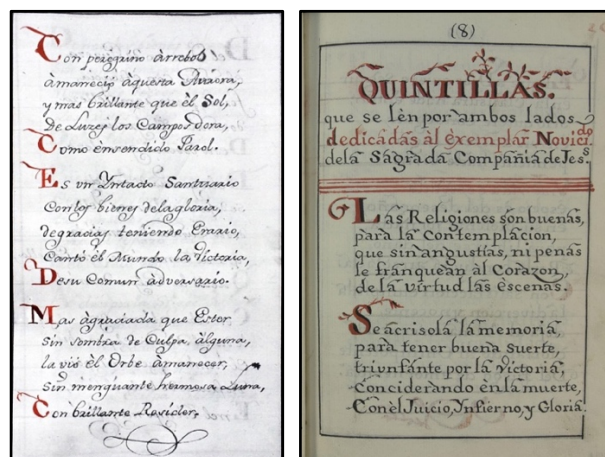 Con peregrino àrrebol
àmaneciò àquesta Aurora,
y mas brillante que èl Sol,
De Luzes los Campos dora,
Como èncendido Farol.
Es vn Yntacto Santuario
Con los bienes dela gloria,
de gracias teniendo Erario,
Cantò èl Mundo la Victoria,
De su Comun àdversario.
Mas àgraciada que Ester
Sin sombra de Culpa àlguna,
la viò èl Orbe àmanecer,
Sin menguante hermosa Luna,
Con brillante Rosicler.
(8)
QUINTILLAS.
que se lèn por ambos lados
dedicadas àl exemplar Novici.do
dela Sagrada Compañia de Jes.s
Las Religiones son buenas,
para la Contemplacion,
que sin angustias, ni penas
le franquean àl Corazon,
de la virtud las escenas.
Se acrisola la memoria,
para tener buena Suerte,
triunfante por la Victoria,
Conciderando èn la muerte,
Con èl Juicio, Ynfierno, y Gloria.